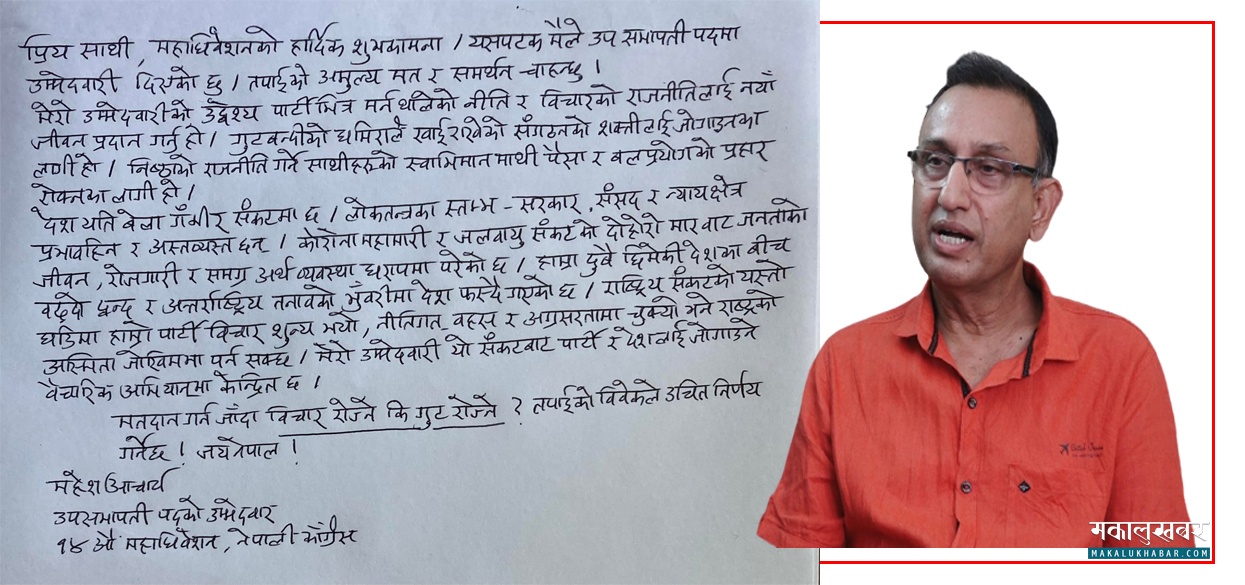 प्रिय साथी, महाधिवेशनको हार्दिक शुभकामना । यसपटक मैले उप सभापती पदमा
उम्मेदवारी दिएको छु । तपाईको अमुल्य मत र समर्थन चाहन्छु ।
मेरो उम्मेदवारीको उद्देश्य पार्टी भित्र मर्न थालेको नीति र विचारको राजनीतिलाई नयाँ
जीवन प्रदान गर्नु हो । गुटबन्दीको धमिराले खाई राखेको संगठनको शक्तीलाई जोगाउनका
लागी हो । निष्ठाको राजनीति गर्ने साथीहरुको स्वाभिमान माथी पैसा र बलप्रयोगको प्रहार
रोक्नका लागी हो ।
देश यति बेला गँभीर संकटमा छ । लोकतन्त्रका स्तम्भ - सरकार, संसद र न्यायक्षेत्र
प्रभावहिन र अस्तव्यस्त छन् । कोरोना महामारी र जलवायु संकटको दोहोरो मारबाट जनताको
जीवन, रोजगारी र समग्र अर्थ व्यवस्था धरापमा परेको छ । हाम्रा दुवै छिमेकी देशका बीच
बढ्दो द्वन्द र अन्तर्राष्ट्रिय तनावको भुँवरीमा देश फस्दै गएको छ । राष्ट्रिय संकटको यस्तो
घडिमा हाम्रो पार्टी विचार शुन्य भयो, नीतिगत बहस र अग्रसरतामा चुक्यो भने राष्ट्रको
अस्मिता जोखिममा पर्न सक्छ । मेरो उम्मेदवारी यो संकटबाट पार्टी र देशलाई जोगाउने
वैचारिक अभियानमा केन्द्रित छ ।
मतदान गर्न जाँदा विचार रोज्ने कि गुट रोज्ने ? तपाईको विवेकले उचित निर्णय
गर्नेछ ! जय नेपाल !
महेश आचार्य
उपसभापती पदको उम्मेदवार
१४ औं महाधिवेशन, नेपाली काँग्रेस
मकालुखबर
MAKALUKHABAR.COM